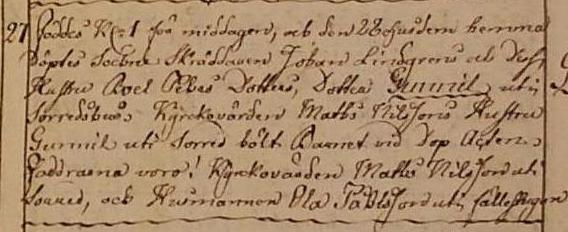 27 Föddes Kl: 1 för middagen, och den 28 Ejusdem hemma
Döptes Sockne Skräddaren Johan Lindgrens och Dess
Hustru Boel Pehrs Dotters, Dotter Gunnil uti
Torredsbo: Kyrckovärden Matts Nilssons Hustru
Gunnil uti Torred bölt Barnet vid Dop Acten.
Faddrarna voro: Kyrckovärden Matts Nilsson uti
Torred, och Husmannen Ola Påhlsson uti